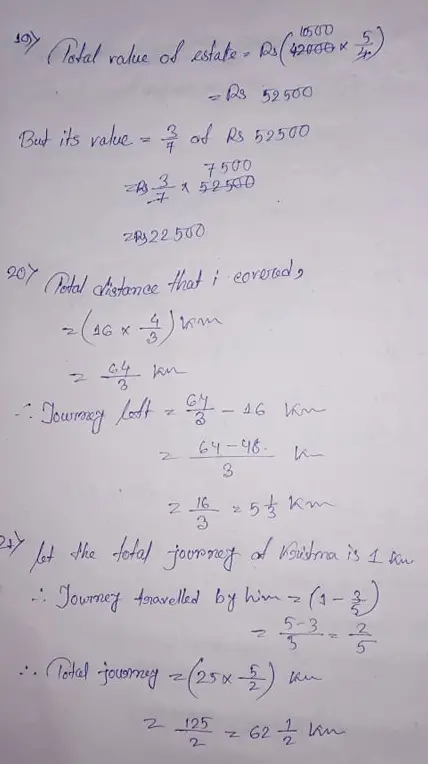 19) Total value of estate = Rs (42000 × 5/4) 10500
= Rs 52500
But its value = 3/7 of Rs 52500
= Rs 3/7 × 52500 7500
= Rs 22500
20) Total distance that i covered,
= (16 × 4/3) km
= 64/3 km
∴ Journey left = 64/3 - 16 km
= 64-48/3 km
= 16/3 = 5 1/3 km
21) let the total journey of Krishna is 1 km
∴ Journey travelled by him = (1 - 3/5)
= 5-3/5 = 2/5
∴ Total journey = (25 × 5/2) km
= 125/2 = 62 1/2 km